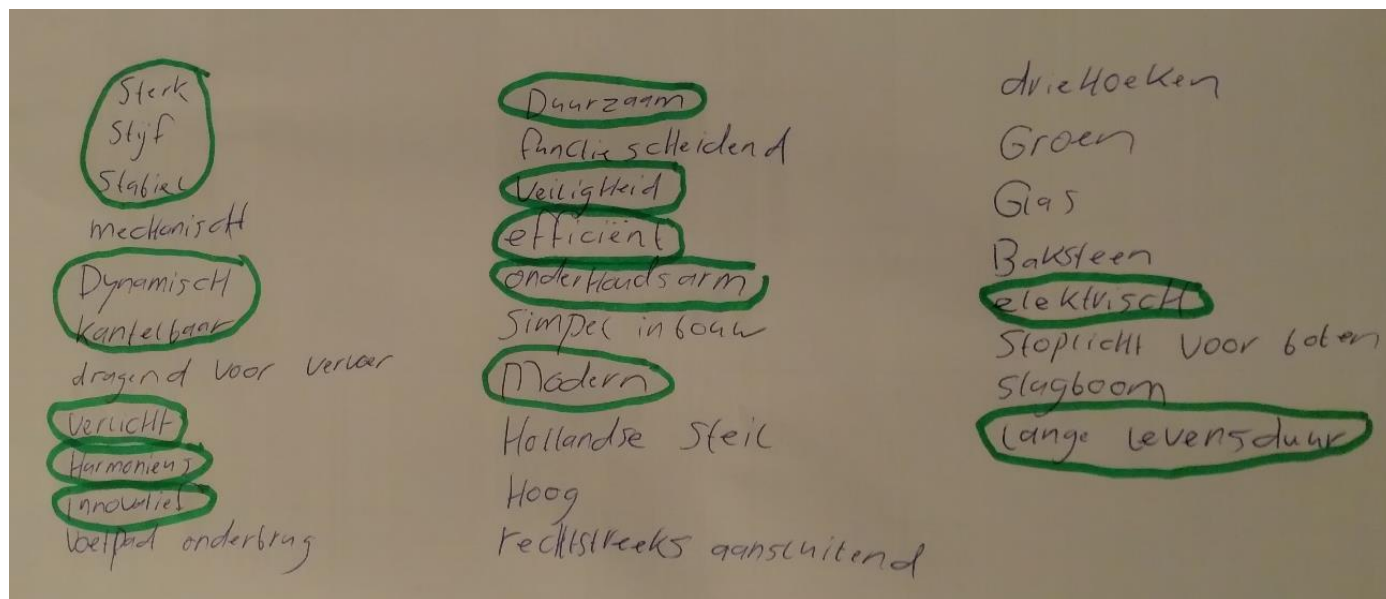 Sterk
Stijf
Stabiel
mechanisch
Dynamisch
kantelbaar
dragend voor vervoer
verlicht
Harmonieus
innovatief
Voetpad onderbrug
Duurzaam
functiescheidend
Veiligheid
efficiënt
onderhoudsarm
Simpel inbouw
Modern
Hollandse Steil
Hoog
rechtstreeks aansluitend
driehoeken
Groen
Glas
Baksteen
elektrisch
Stoplicht voor boten
slagboom
Lange levensduur